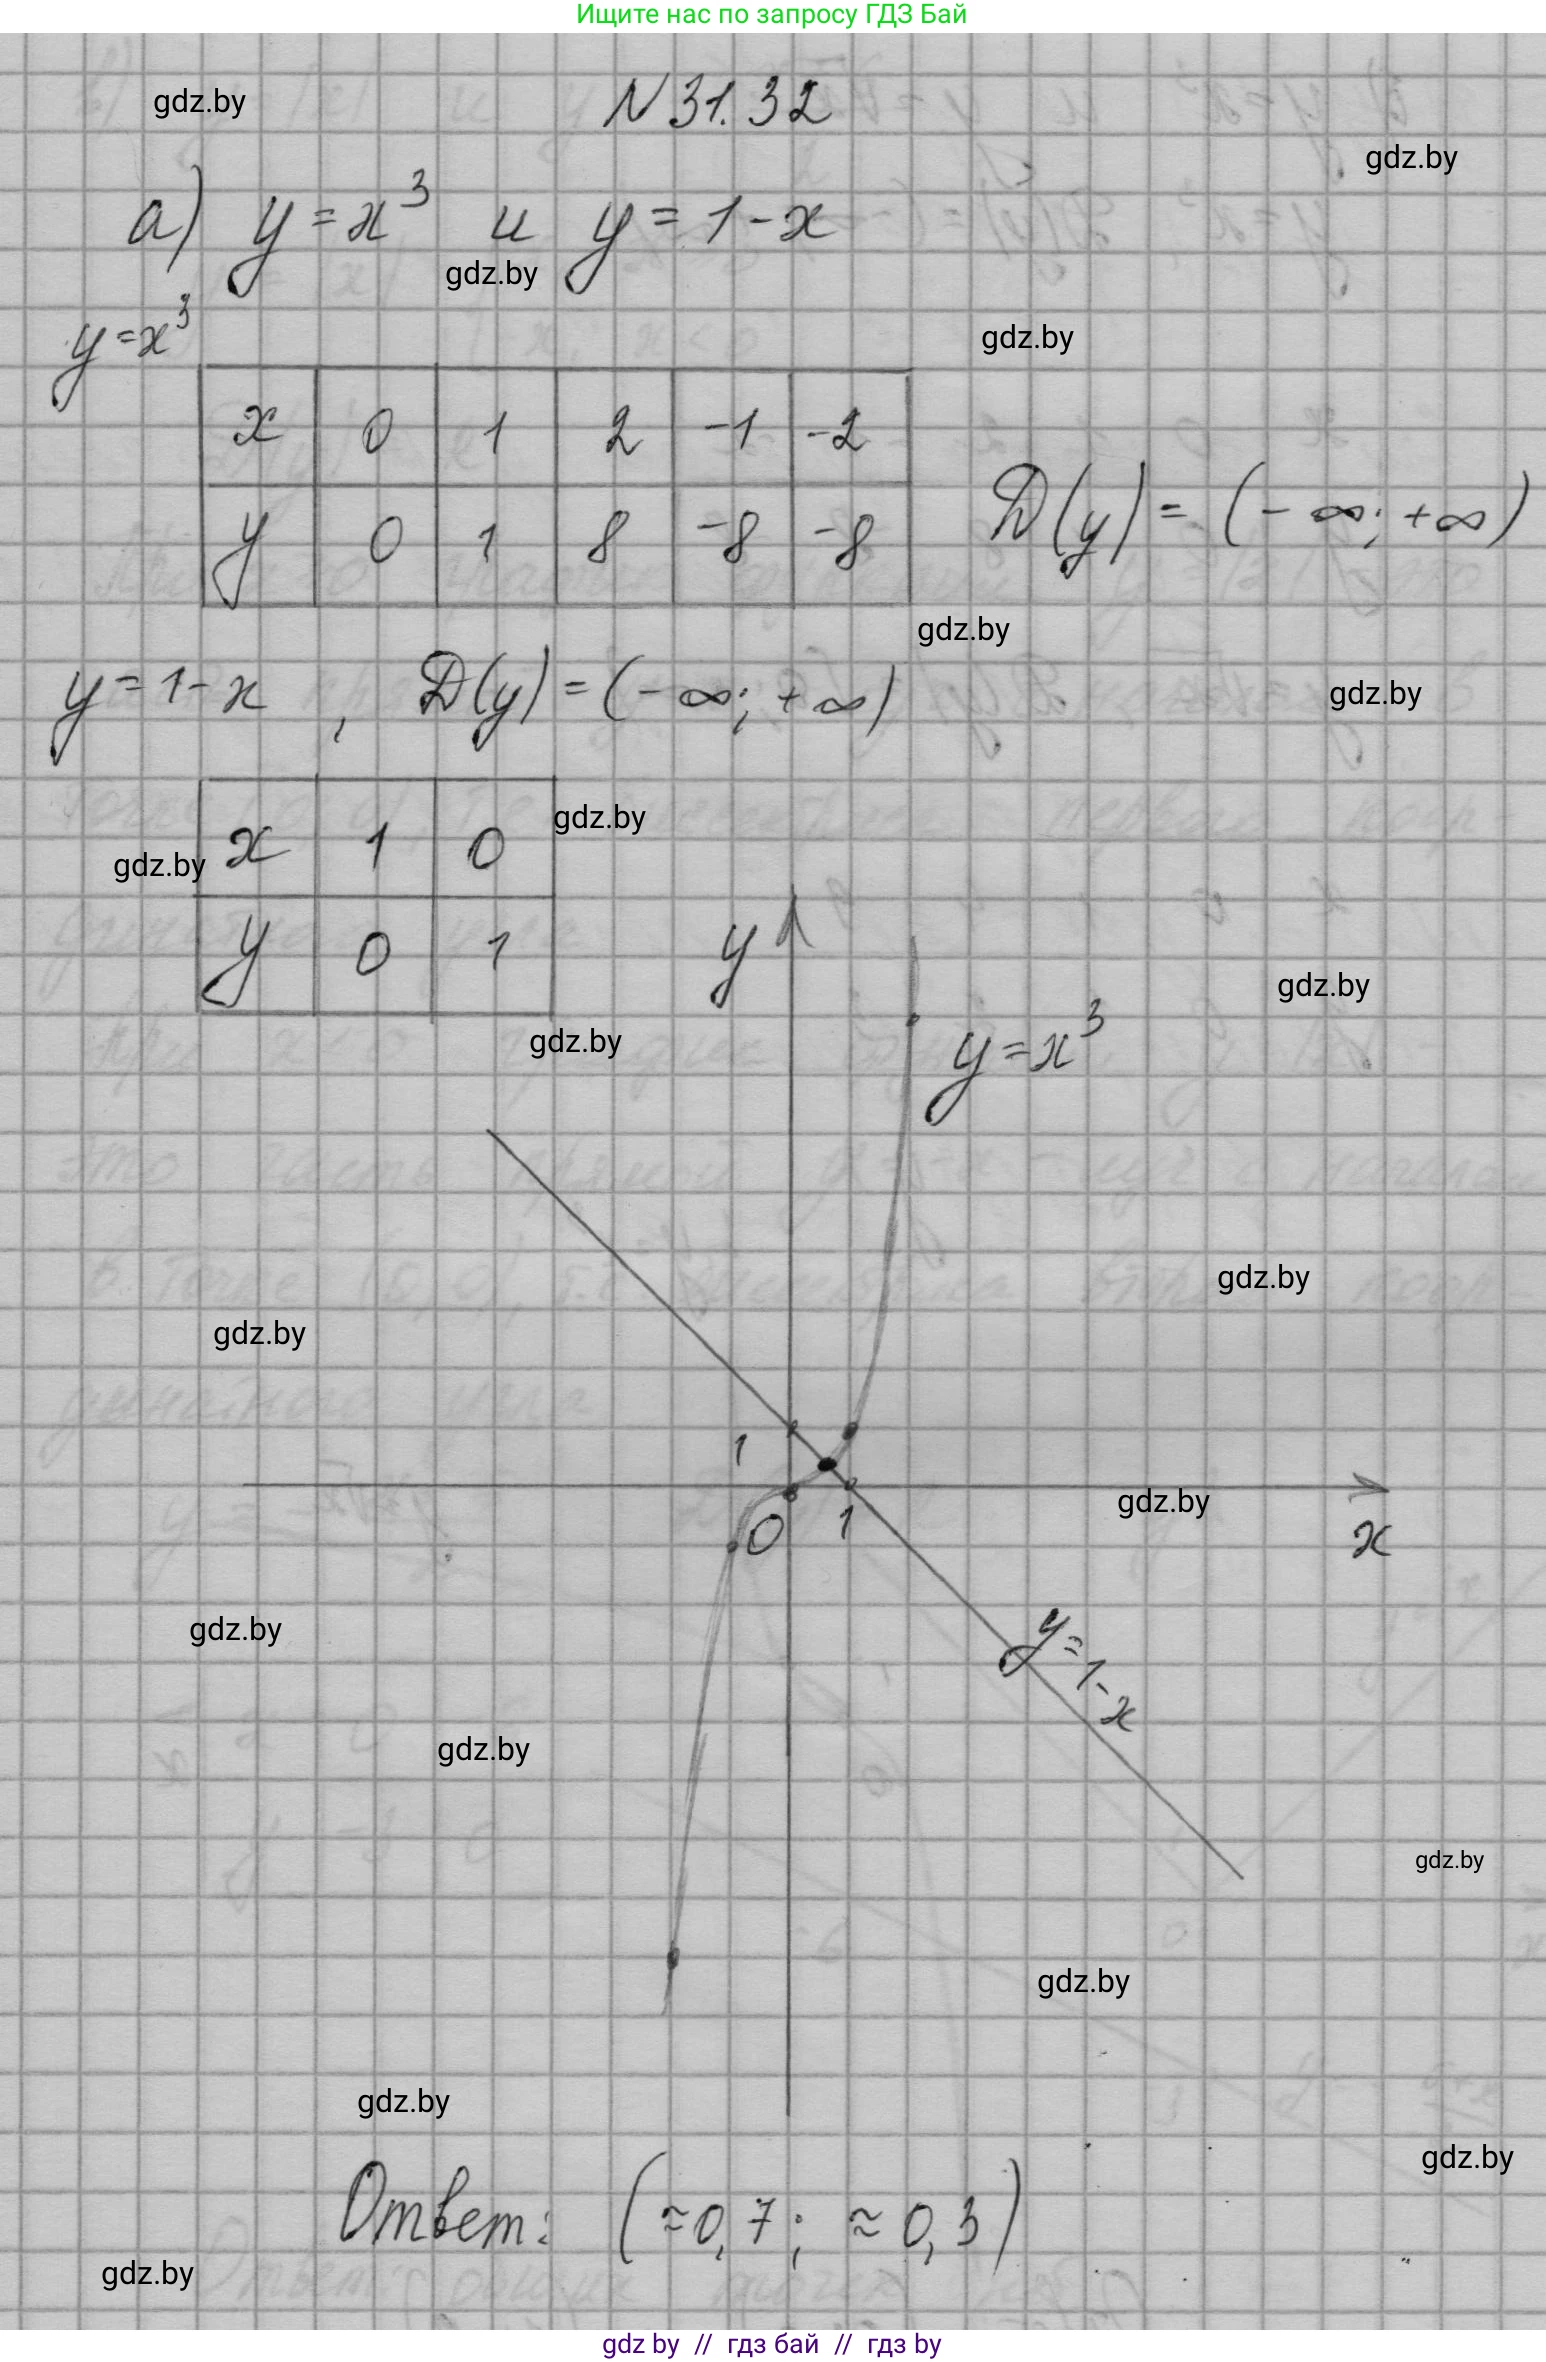 Ищите нас по запросу ГДЗ Бай
N 31.32
gdz.by
gdz.by
а) y = x³ и y = 1 - x
gdz.by
y = x³
gdz.by
x 0 1 2 -1 -2
y 0 1 8 -8 -8
D(y) = (-∞; +∞)
gdz.by
y = 1 - x , D(y) = (-∞; +∞)
gdz.by
x 1 0
gdz.by
gdz.by
y 0 1
y
gdz.by
gdz.by
y = x³
gdz.by
gdz.by
1
gdz.by
0 1
x
gdz.by
y = 1 - x
gdz.by
gdz.by
gdz.by
gdz.by
gdz.by
Ответ: (≈0,7; ≈0,3)
gdz.by
gdz by // гдз бай // гдз by